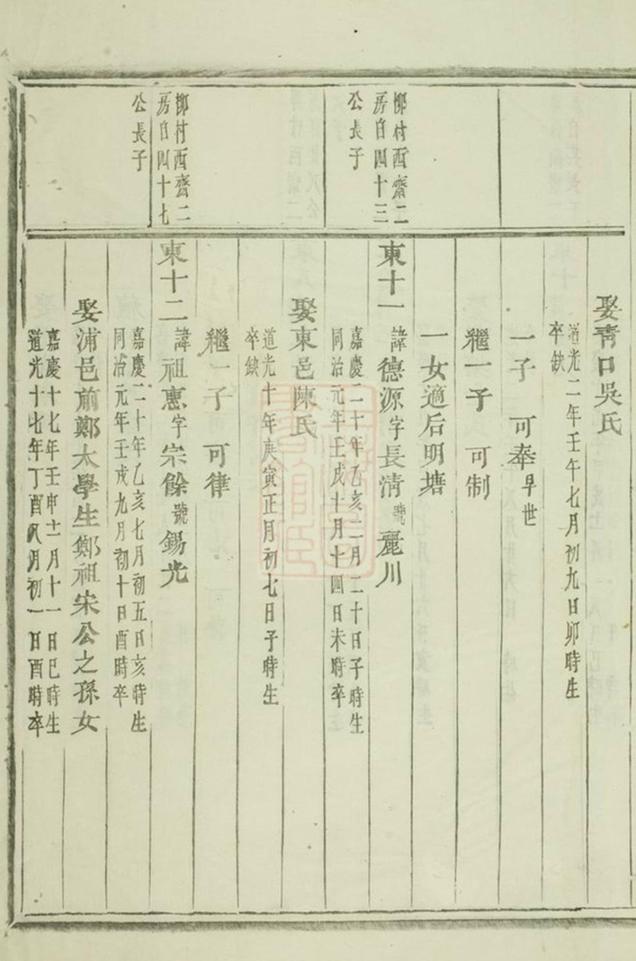 娶青口吳氏
道光二年壬午七月初九日卯時生
卒缺
一子 可奉早世
繼一子 可制
一女適后明塘
柳村西齋二
房自四十三
公長子
東十一 諱德源字長清號麗川
嘉慶二十年乙亥二月二十日子時生
同治元年壬戌十月十四日未時卒
娶東邑陳氏
道光十年庚寅正月初七日子時生
卒缺
繼一子 可律
柳村西齋二
房自四十七
公長子
東十二 諱祖惠字宗餘號錫光
嘉慶二十年乙亥七月初五日亥時生
同治元年壬戌九月初十日酉時卒
娶浦邑前鄭太學生鄭祖宋公之孫女
嘉慶十七年壬申十二月十一日巳時生
道光十七年丁酉八月初一日酉時卒